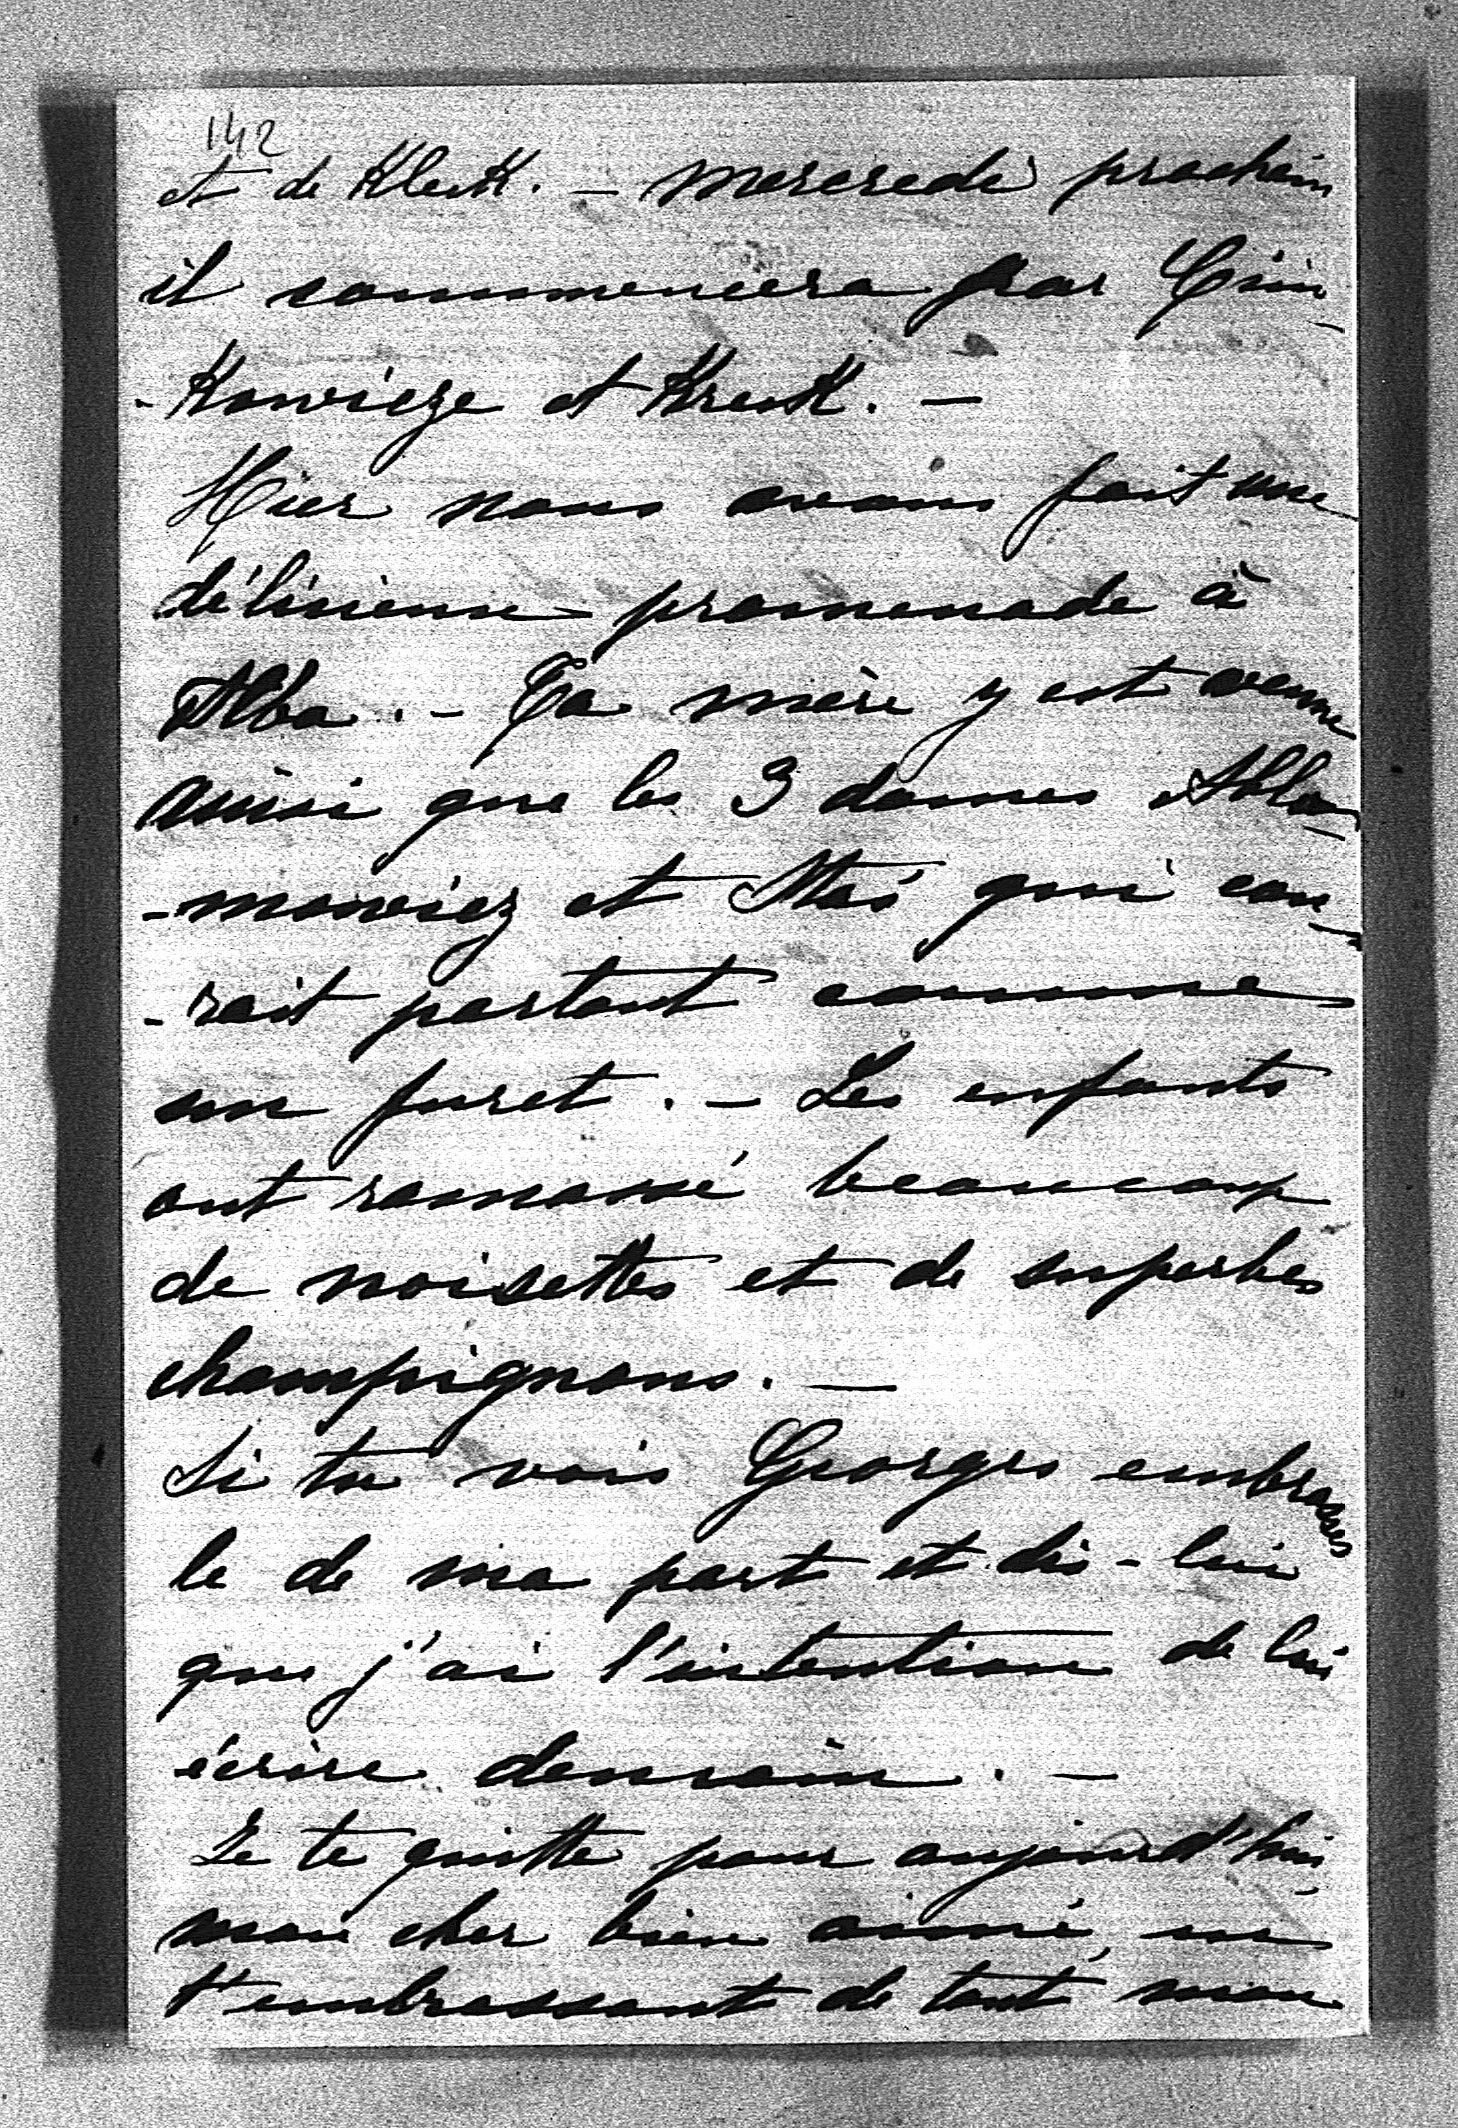 142
et de Kleck. – mercredi prochain
il commencera par Cin-
-Kowicze et Kreck. –
Hier nous avons fait une
délicieuse promenade à
Alba. – Ta mère y est venue
ainsi que les 3 dames Abla-
-mowicz et Stas qui cou-
-rait partout comme
un furet. – Les enfants
ont ramassé beaucoup
de noisettes et de superbes
champignons. –
Si tu vois Georges embrasses
le de ma part et dis-lui
que j'ai l'intention de lui
écrire demain. –
Je te quitte pour aujourd'hui
mon cher bien aimé, en
t'embrassant de tout mon